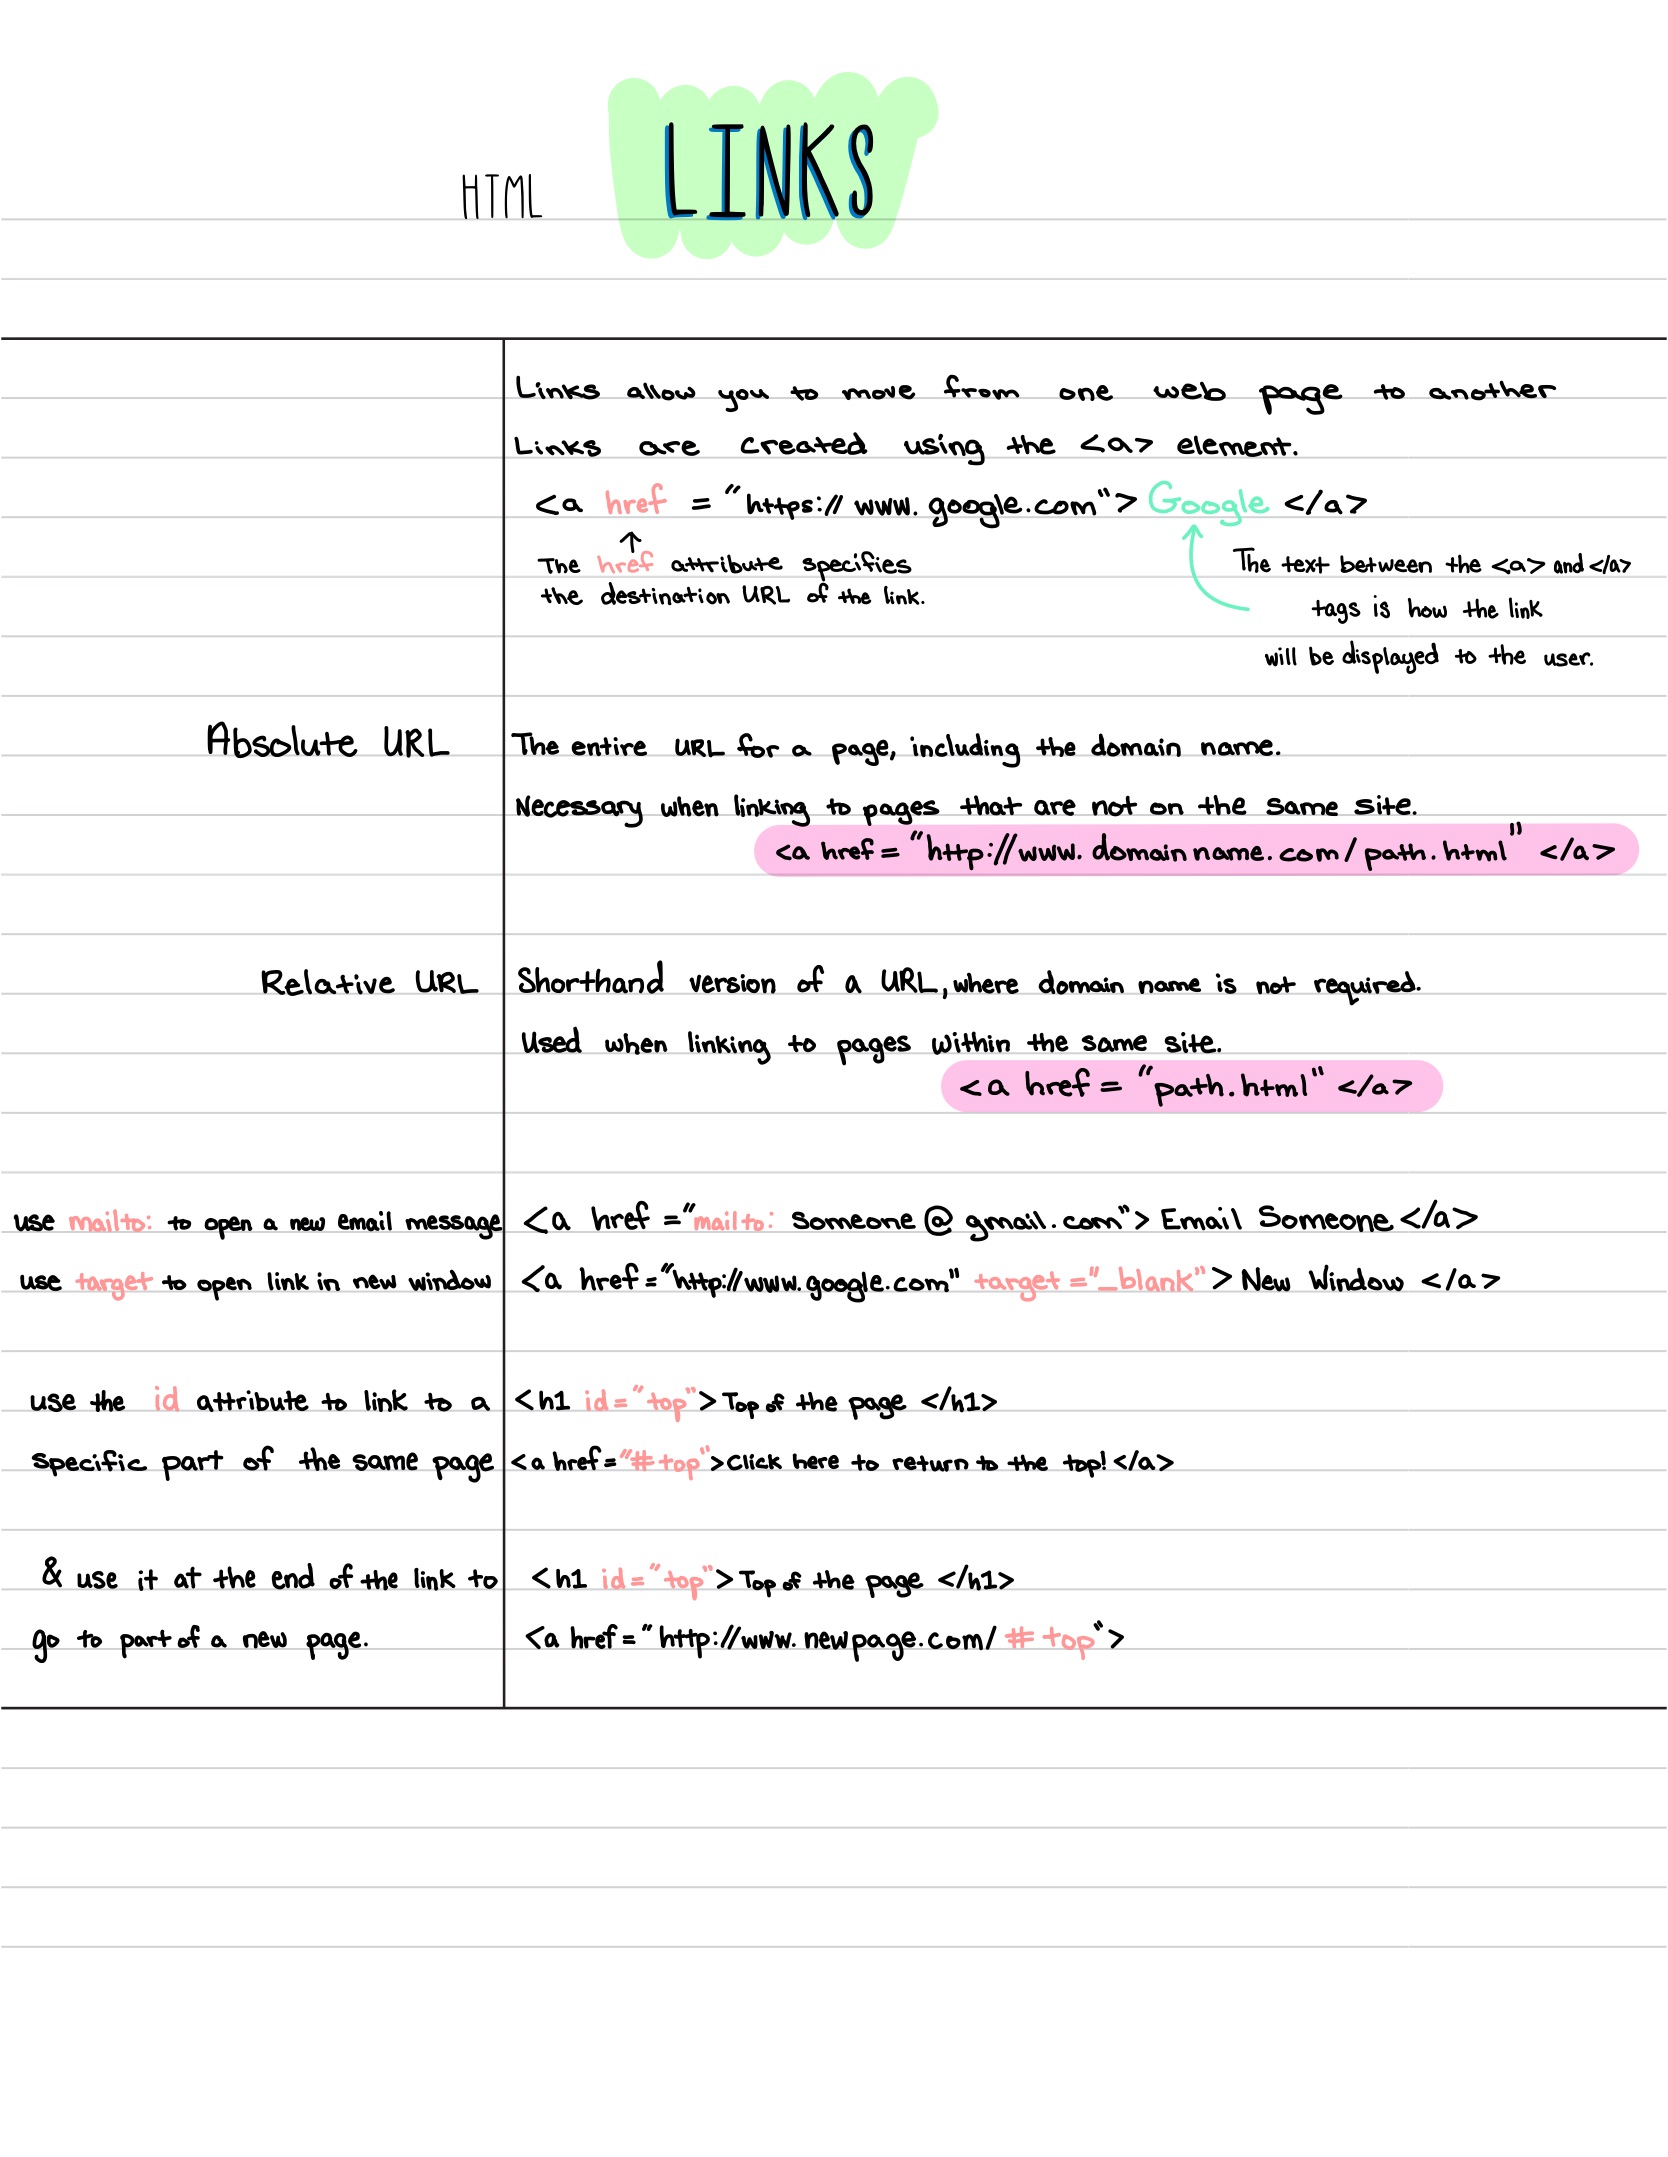 HTML LINKS
Links allow you to move from one web page to another
Links are created using the <a> element.
<a href = "https://www.google.com"> Google </a>
The href attribute specifies
the destination URL of the link.
The text between the <a> and </a>
tags is how the link
will be displayed to the user.
Absolute URL
The entire URL for a page, including the domain name.
Necessary when linking to pages that are not on the same site.
<a href = "http://www.domainname.com/path.html" </a>
Relative URL
Shorthand version of a URL, where domain name is not required.
Used when linking to pages within the same site.
<a href = "path.html" </a>
use mailto: to open a new email message
<a href ="mailto: someone@gmail.com"> Email Someone </a>
use target to open link in new window
<a href="http://www.google.com" target ="_blank"> New Window </a>
use the id attribute to link to a
specific part of the same page
<h1 id="top">Top of the page </h1>
<a href="#top">Click here to return to the top!</a>
& use it at the end of the link to
go to part of a new page.
<h1 id="top">Top of the page </h1>
<a href="http://www.newpage.com/#top">